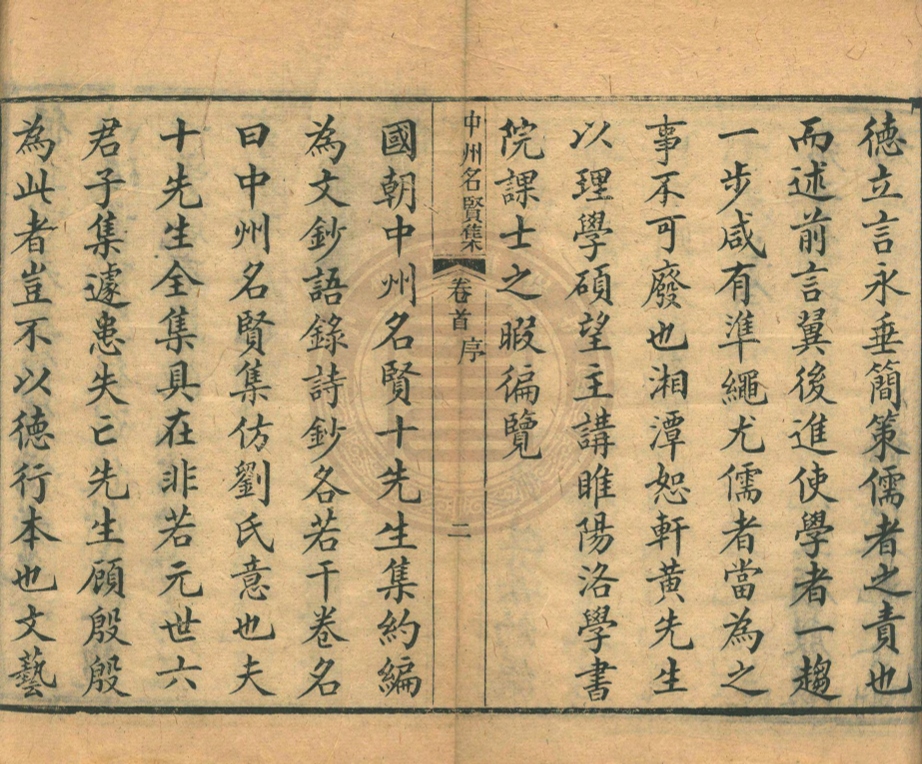 德立言永垂簡策儒者之責也
而述前言翼後進使學者一趨
一步咸有準繩尤儒者當為之
事不可廢也湘潭恕軒黃先生
以理學碩望主講睢陽洛學書
院課士之暇徧覽
中州名賢集 卷首 序 二
國朝中州名賢十先生集約編
為文鈔語錄詩鈔各若干卷名
曰中州名賢集仿劉氏意也夫
十先生全集具在非若元世六
君子集遽患失亡先生顧殷殷
為此者豈不以德行本也文藝